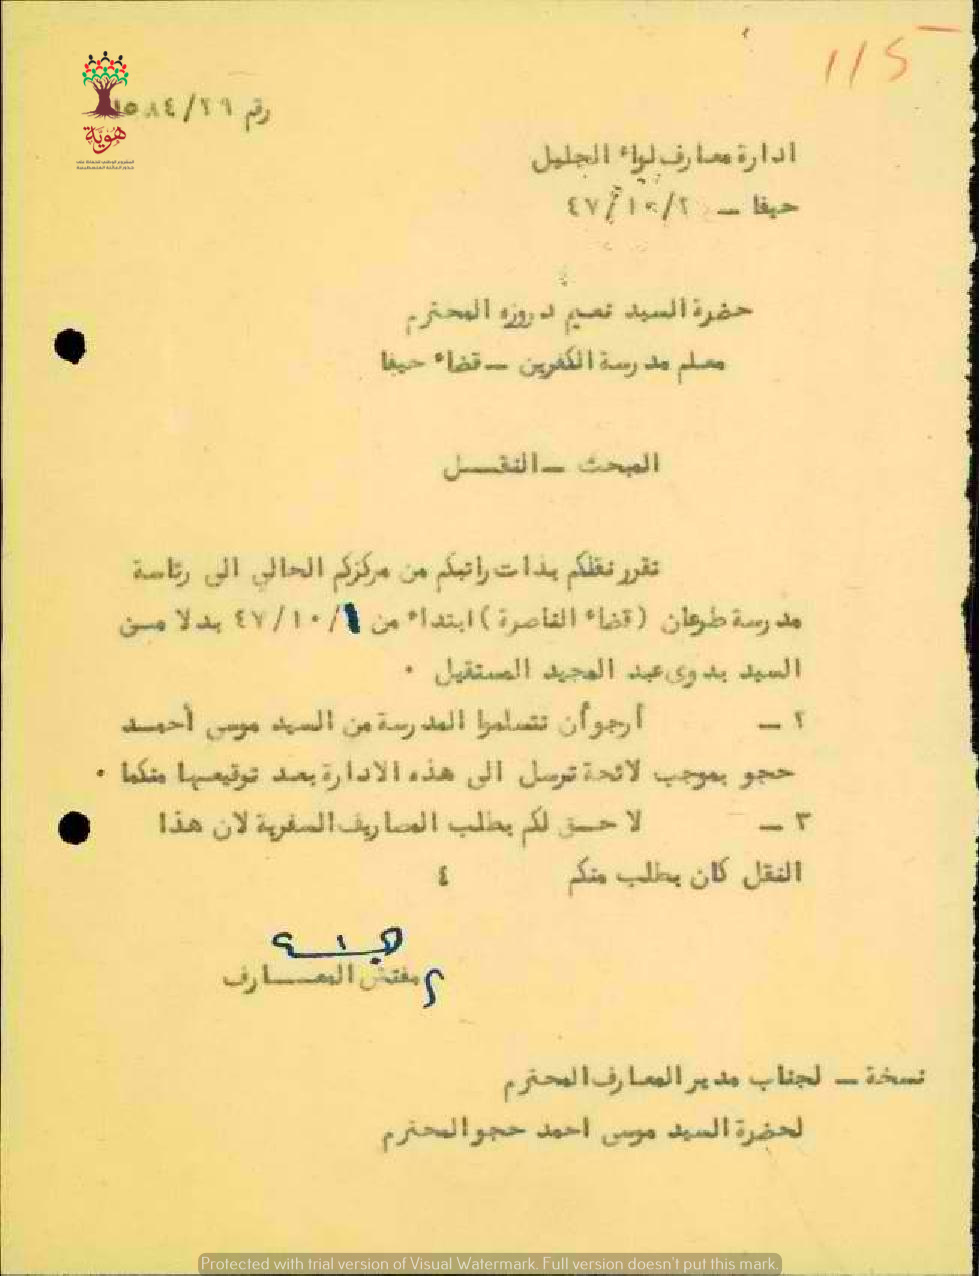 115
رقم ١٥٨٤/٢٩
هوية
ادارة معارف لواء الجليل
حيفا – ٤٧/١٠/٢
حضرة السيد نعيم دروزه المحترم
معلم مدرسة الكفرين – قضاء حيفا
المبحث – النقــل
تقرر نقلكم بذات راتبكم من مركزكم الحالي الى رئاسة
مدرسة طرعان (قضاء الناصرة) ابتداء من ٤٧/١٠/١ بدلا مــن
السيد بدوى عبد المجيد المستقيل .
٢ – أرجو أن تتسلموا المدرسة من السيد موسى أحمــد
حجو بموجب لائحة ترسل الى هذه الادارة بعد توقيعها منكما .
٣ – لا حــق لكم بطلب المصاريف السفرية لان هذا
النقل كان بطلب منكم ٤
مفتش المعــارف
نسخة – لجناب مدير المعارف المحترم
لحضرة السيد موسى احمد حجو المحترم
Protected with trial version of Visual Watermark. Full version doesn't put this mark.